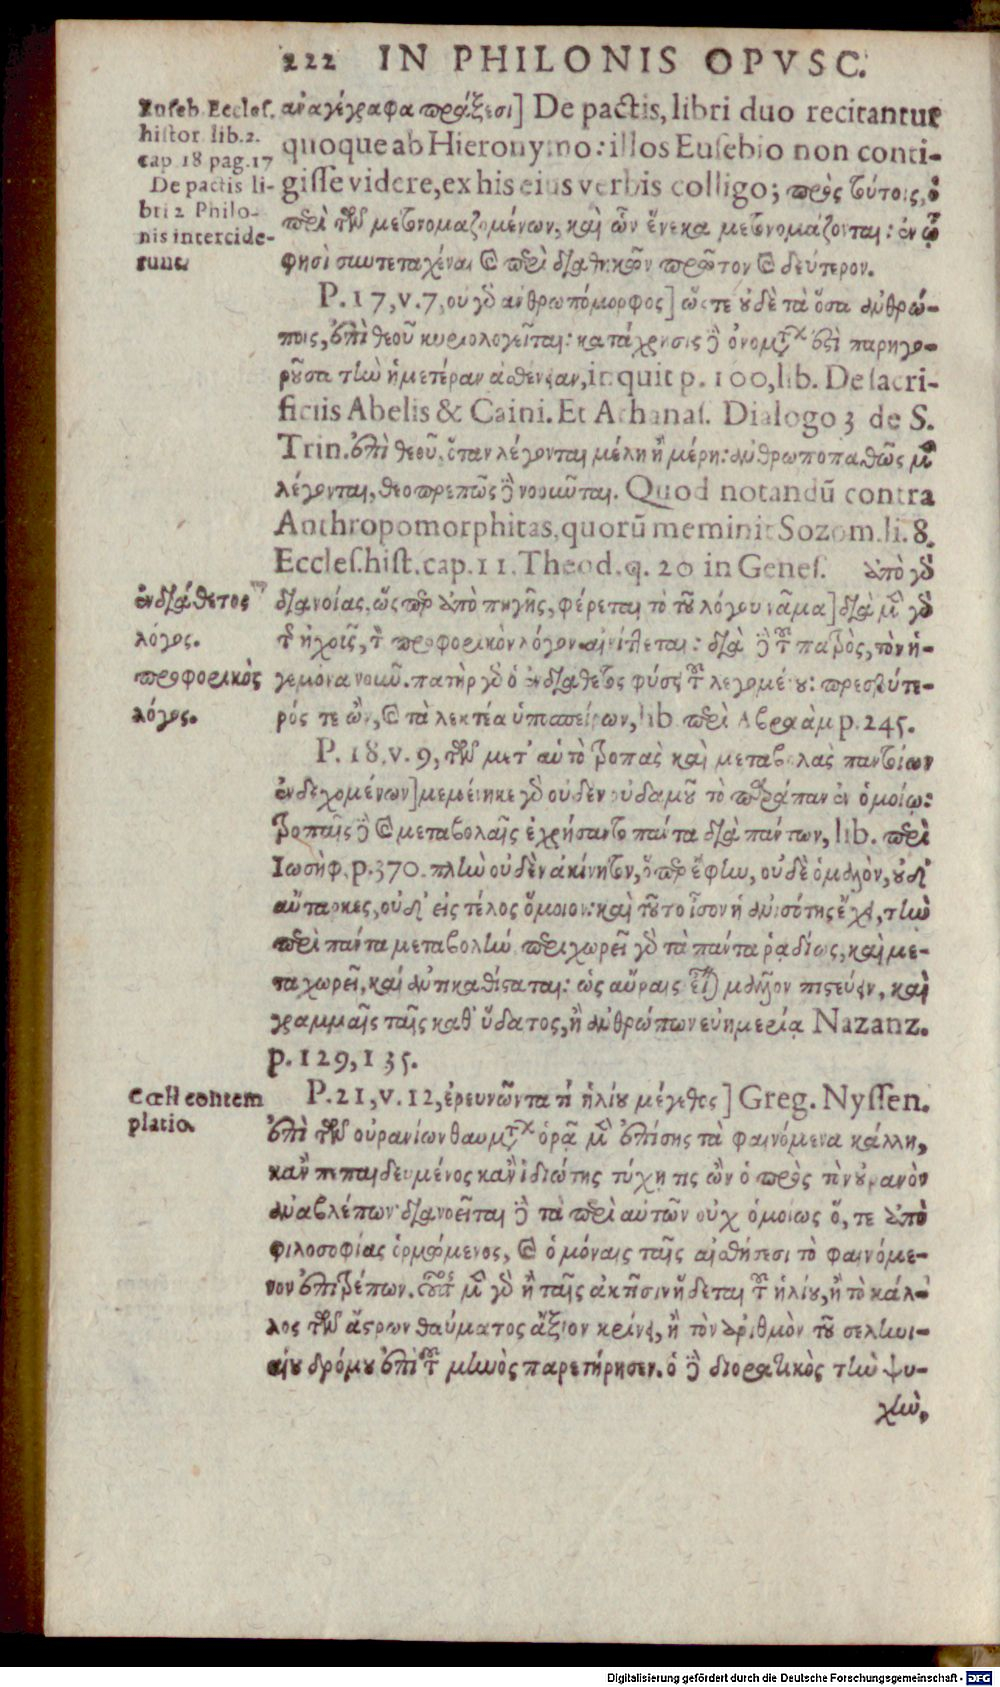 222 IN PHILONIS OPVSC.
Euseb. Eccles.
histor. lib. 2.
cap 18 pag. 17
De pactis li-
bri 2 Philo-
nis intercide-
runt.
ἀναγέγραφα πράξεσι] De pactis, libri duo recitantur
quoque ab Hieronymo: illos Eusebio non conti-
gisse videre, ex his eius verbis colligo; πρὸς τούτοις, ὁ
περὶ τῶν μετονομαζομένων, καὶ ὧν ἕνεκα μετονομάζονται: ἐν ᾧ
φησὶ συντεταχέναι καὶ περὶ διαθηκῶν πρῶτον καὶ δεύτερον.
P. 17, v. 7, οὐ γὰρ ἀνθρωπόμορφος] ὥς τε οὐδὲ τὰ ὅσα ἀνθρώ-
ποις, ἐπὶ θεοῦ κυριολογεῖται: κατάχρησις δὲ ὀνομάτων ἐστὶ παρηγο-
ροῦσα τὴν ἡμετέραν ἀσθένειαν, inquit p. 100, lib. De sacri-
ficiis Abelis & Caini. Et Athanas. Dialogo 3 de S.
Trin. ἐπὶ θεοῦ, ὅταν λέγονται μέλη ἢ μέρη: ἀνθρωποπαθῶς μὲν
λέγονται, θεοπρεπῶς δὲ νοοῦνται. Quod notandū contra
Anthropomorphitas, quorū meminit Sozom. li. 8.
Eccles. hist. cap. 11. Theod. q. 20 in Genes. ἀπὸ γὰρ
ἐνδιάθετος
λόγος.
προφορικὸς
λόγος.
διανοίας, ὥς περ ἀπὸ πηγῆς, φέρεται τὸ τοῦ λόγου νᾶμα] διὰ μὲν γὰρ
τῆς ἠχοῦς, τὸν προφορικὸν λόγον αἰνίττεται: διὰ δὲ τοῦ πατρὸς, τὸν ἡ-
γεμόνα νοῦν. πατὴρ γὰρ ὁ ἐνδιάθετος φύσει τοῦ λεγομένου: πρεσβύτε-
ρός τε ὢν, καὶ τὰ λεκτέα ὑποσπείρων, lib. περὶ Αβραὰμ p. 245.
P. 18, v. 9, τῶν μετ' αὐτὸ τροπὰς καὶ μεταβολὰς παντοίων
ἐνδεχομένων] μεμένηκε γὰρ οὐδὲν οὐδαμοῦ τὸ παράπαν ἐν ὁμοίῳ:
τροπαῖς δὲ καὶ μεταβολαῖς ἐχρήσαντο πάντα διὰ πάντων, lib. περὶ
Ιωσὴφ. p. 370. πλὴν οὐδὲν ἀκίνητον, ὅπερ ἔφην, οὐδὲ ὁμαλὸν, οὐδ'
αὔταρκες, οὐδ' εἰς τέλος ὅμοιον: καὶ τοῦτο ἴσον ἡ ἀνισότης ἔχει, τὴν
περὶ πάντα μεταβολήν. περιχωρεῖ γὰρ τὰ πάντα ῥαδίως, καὶ με-
ταχωρεῖ, καὶ ἀντικαθίσταται: ὡς αὔραις εἶναι μᾶλλον πιστεύειν, καὶ
γραμμαῖς ταῖς καθ' ὕδατος, ἢ ἀνθρώπων εὐημερίᾳ Nazanz.
p. 129, 135.
Cœli contem
platio.
P. 21, v. 12, ἐρευνῶντα τί ἡλίου μέγεθος] Greg. Nyssen.
ἐπὶ τῶν οὐρανίων θαυμάτων ὁρᾷ μὲν ἐπίσης τὰ φαινόμενα κάλλη,
κἂν πεπαιδευμένος κἂν ἰδιώτης τύχῃ τις ὢν ὁ πρὸς τὸν οὐρανὸν
ἀναβλέπων· διανοεῖται δὲ τὰ περὶ αὐτῶν οὐχ ὁμοίως ὅ, τε ἀπὸ
φιλοσοφίας ὁρμώμενος, καὶ ὁ μόναις ταῖς αἰσθήσεσι τὸ φαινόμε-
νον ἐπιτρέπων. οὗτος μὲν γὰρ ἢ ταῖς ἀκτῖσιν ἥδεται τοῦ ἡλίου, ἢ τὸ κάλ-
λος τῶν ἄστρων θαύματος ἄξιον κρίνει, ἢ τὸν ἀριθμὸν τοῦ σεληνι-
αίου δρόμου ἐπὶ τοῦ μηνὸς παρετήρησεν. ὁ δὲ διορατικὸς τὴν ψυ-
χὴν,
Digitalisierung gefördert durch die Deutsche Forschungsgemeinschaft - DFG